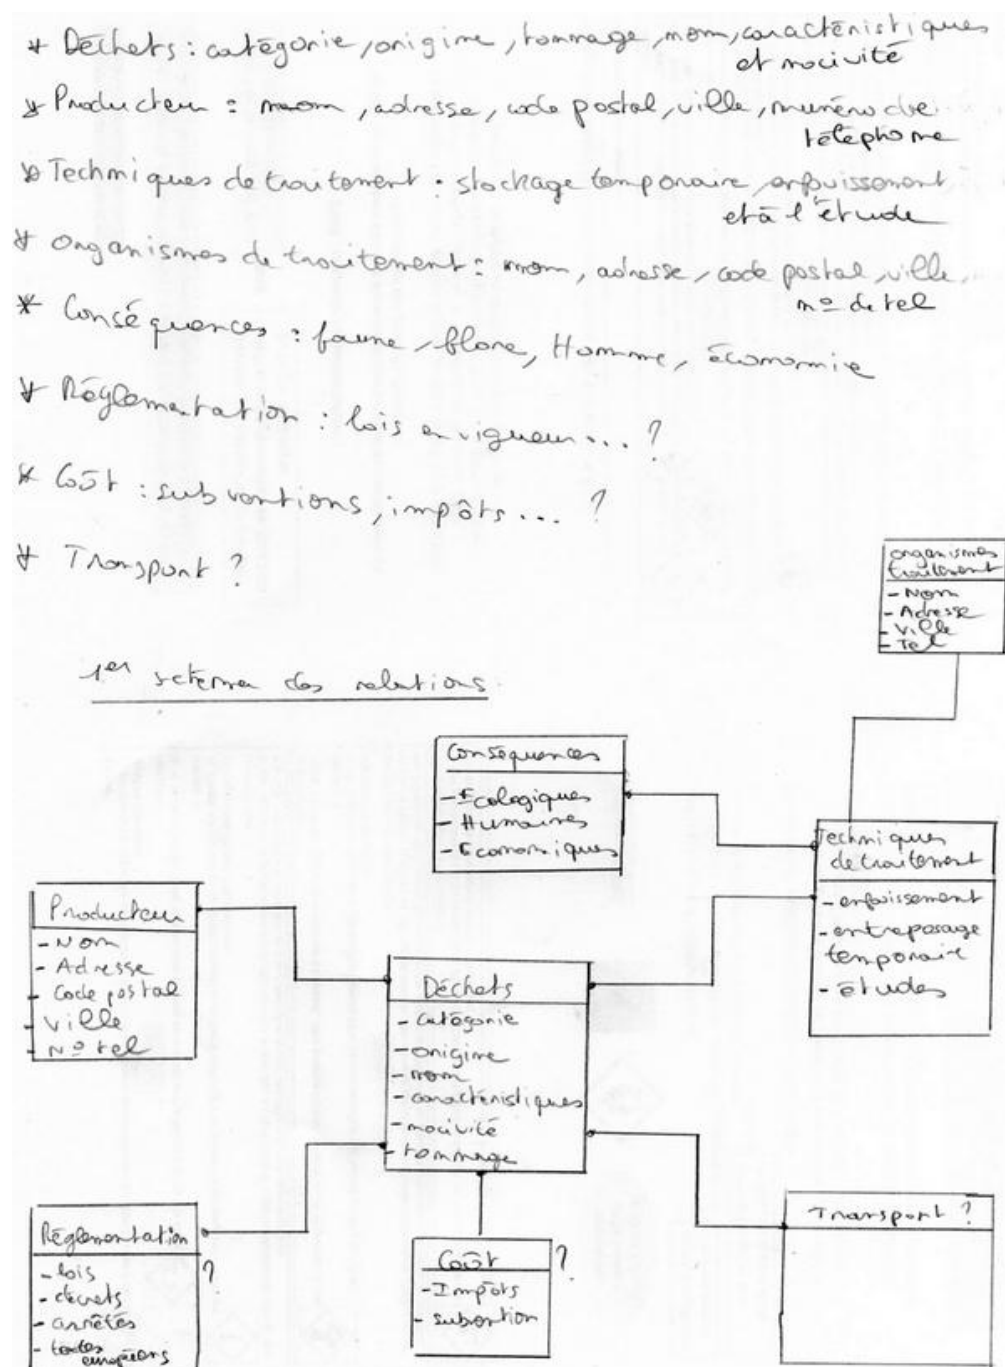 * Déchets : catégorie, origine, tonnage, nom, caractéristiques
et nocivité
* Producteur : nom, adresse, code postal, ville, numéro de
téléphone
* Techniques de traitement : stockage temporaire, enfouissement
et à l'étude
* Organismes de traitement : nom, adresse, code postal, ville,
n° de tel
* Conséquences : faune, flore, Homme, économie
* Réglementation : lois en vigueur... ?
* Coût : subventions, impôts... ?
* Transport ?
organismes
traitement
- Nom
- Adresse
- Ville
- Tel
1er schema des relations
Conséquences
- Ecologiques
- Humaines
- Economiques
Techniques
de traitement
- enfouissement
- entreposage
temporaire
- études
Producteur
- Nom
- Adresse
- Code postal
- Ville
- N° tel
Déchets
- catégorie
- origine
- nom
- caractéristiques
- nocivité
- tonnage
Réglementation
?
- lois
- décrets
- arrêtés
- textes
européens
Coût ?
- Impôts
- subvention
Transport ?